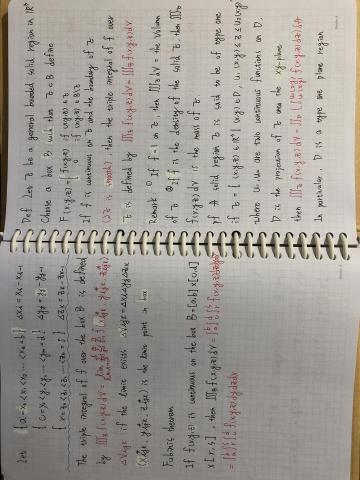 Let { a = x₀ < x₁ < x₂ ... < xₙ = b } Δxᵢ = xᵢ - xᵢ₋₁
{ c = y₀ < y₁ < y₂ ... < yₘ = d } Δyⱼ = yⱼ - yⱼ₋₁
{ r = z₀ < z₁ < z₂ ... < = s } Δzₖ = zₖ - zₖ₋₁
The triple integral of f over the box B is defined
by ∭_B f(x,y,z)dV = lim Σ Σ Σ f(x*ᵢⱼₖ, y*ᵢⱼₖ, z*ᵢⱼₖ)
ΔVᵢⱼₖ if the limit exists. ΔVᵢⱼₖ = ΔxᵢΔyⱼΔzₖ
(x*ᵢⱼₖ, y*ᵢⱼₖ, z*ᵢⱼₖ) is the point in box
Fubini's theorem
If f(x,y,z) is continuous on the box B = [a,b] × [c,d]
× [r,s], then ∭_B f(x,y,z)dV = ∫ ∫ ∫ f(x,y,z)
= ∫ ∫ ∫ f(x,y,z)dydzdx
Def Let E be a general bounded solid region in ℝ³
Choose a box B, such that E ⊂ B define
F(x,y,z) = { f(x,y,z) if (x,y,z) ∈ E
0 if (x,y,z) ∈ B\E
If f is continuous on E and the boundary of E
is smooth, then the triple integral of f over
E is defined by ∭_E f(x,y,z)dV = ∭_B F(x,y,z)dV
Remark ① If f = 1 on E, then ∭_E dV = the Volume
of E ② If f is the density of the solid E, then ∭_E
f(x,y,z)dV is the mass of E
A solid region E is said to be of type one
if E = { (x,y,z) ∈ ℝ³ | (x,y) ∈ D, u₁(x,y) ≤ z ≤ u₂(x,y)
where u₁, u₂ are two continuous functions on D.
D is the projection of E onto the xy-plane
then ∭_E f(x,y,z)dV = ∬_D [∫ f(x,y,z)dz]dA
In particular D is a type one plane region